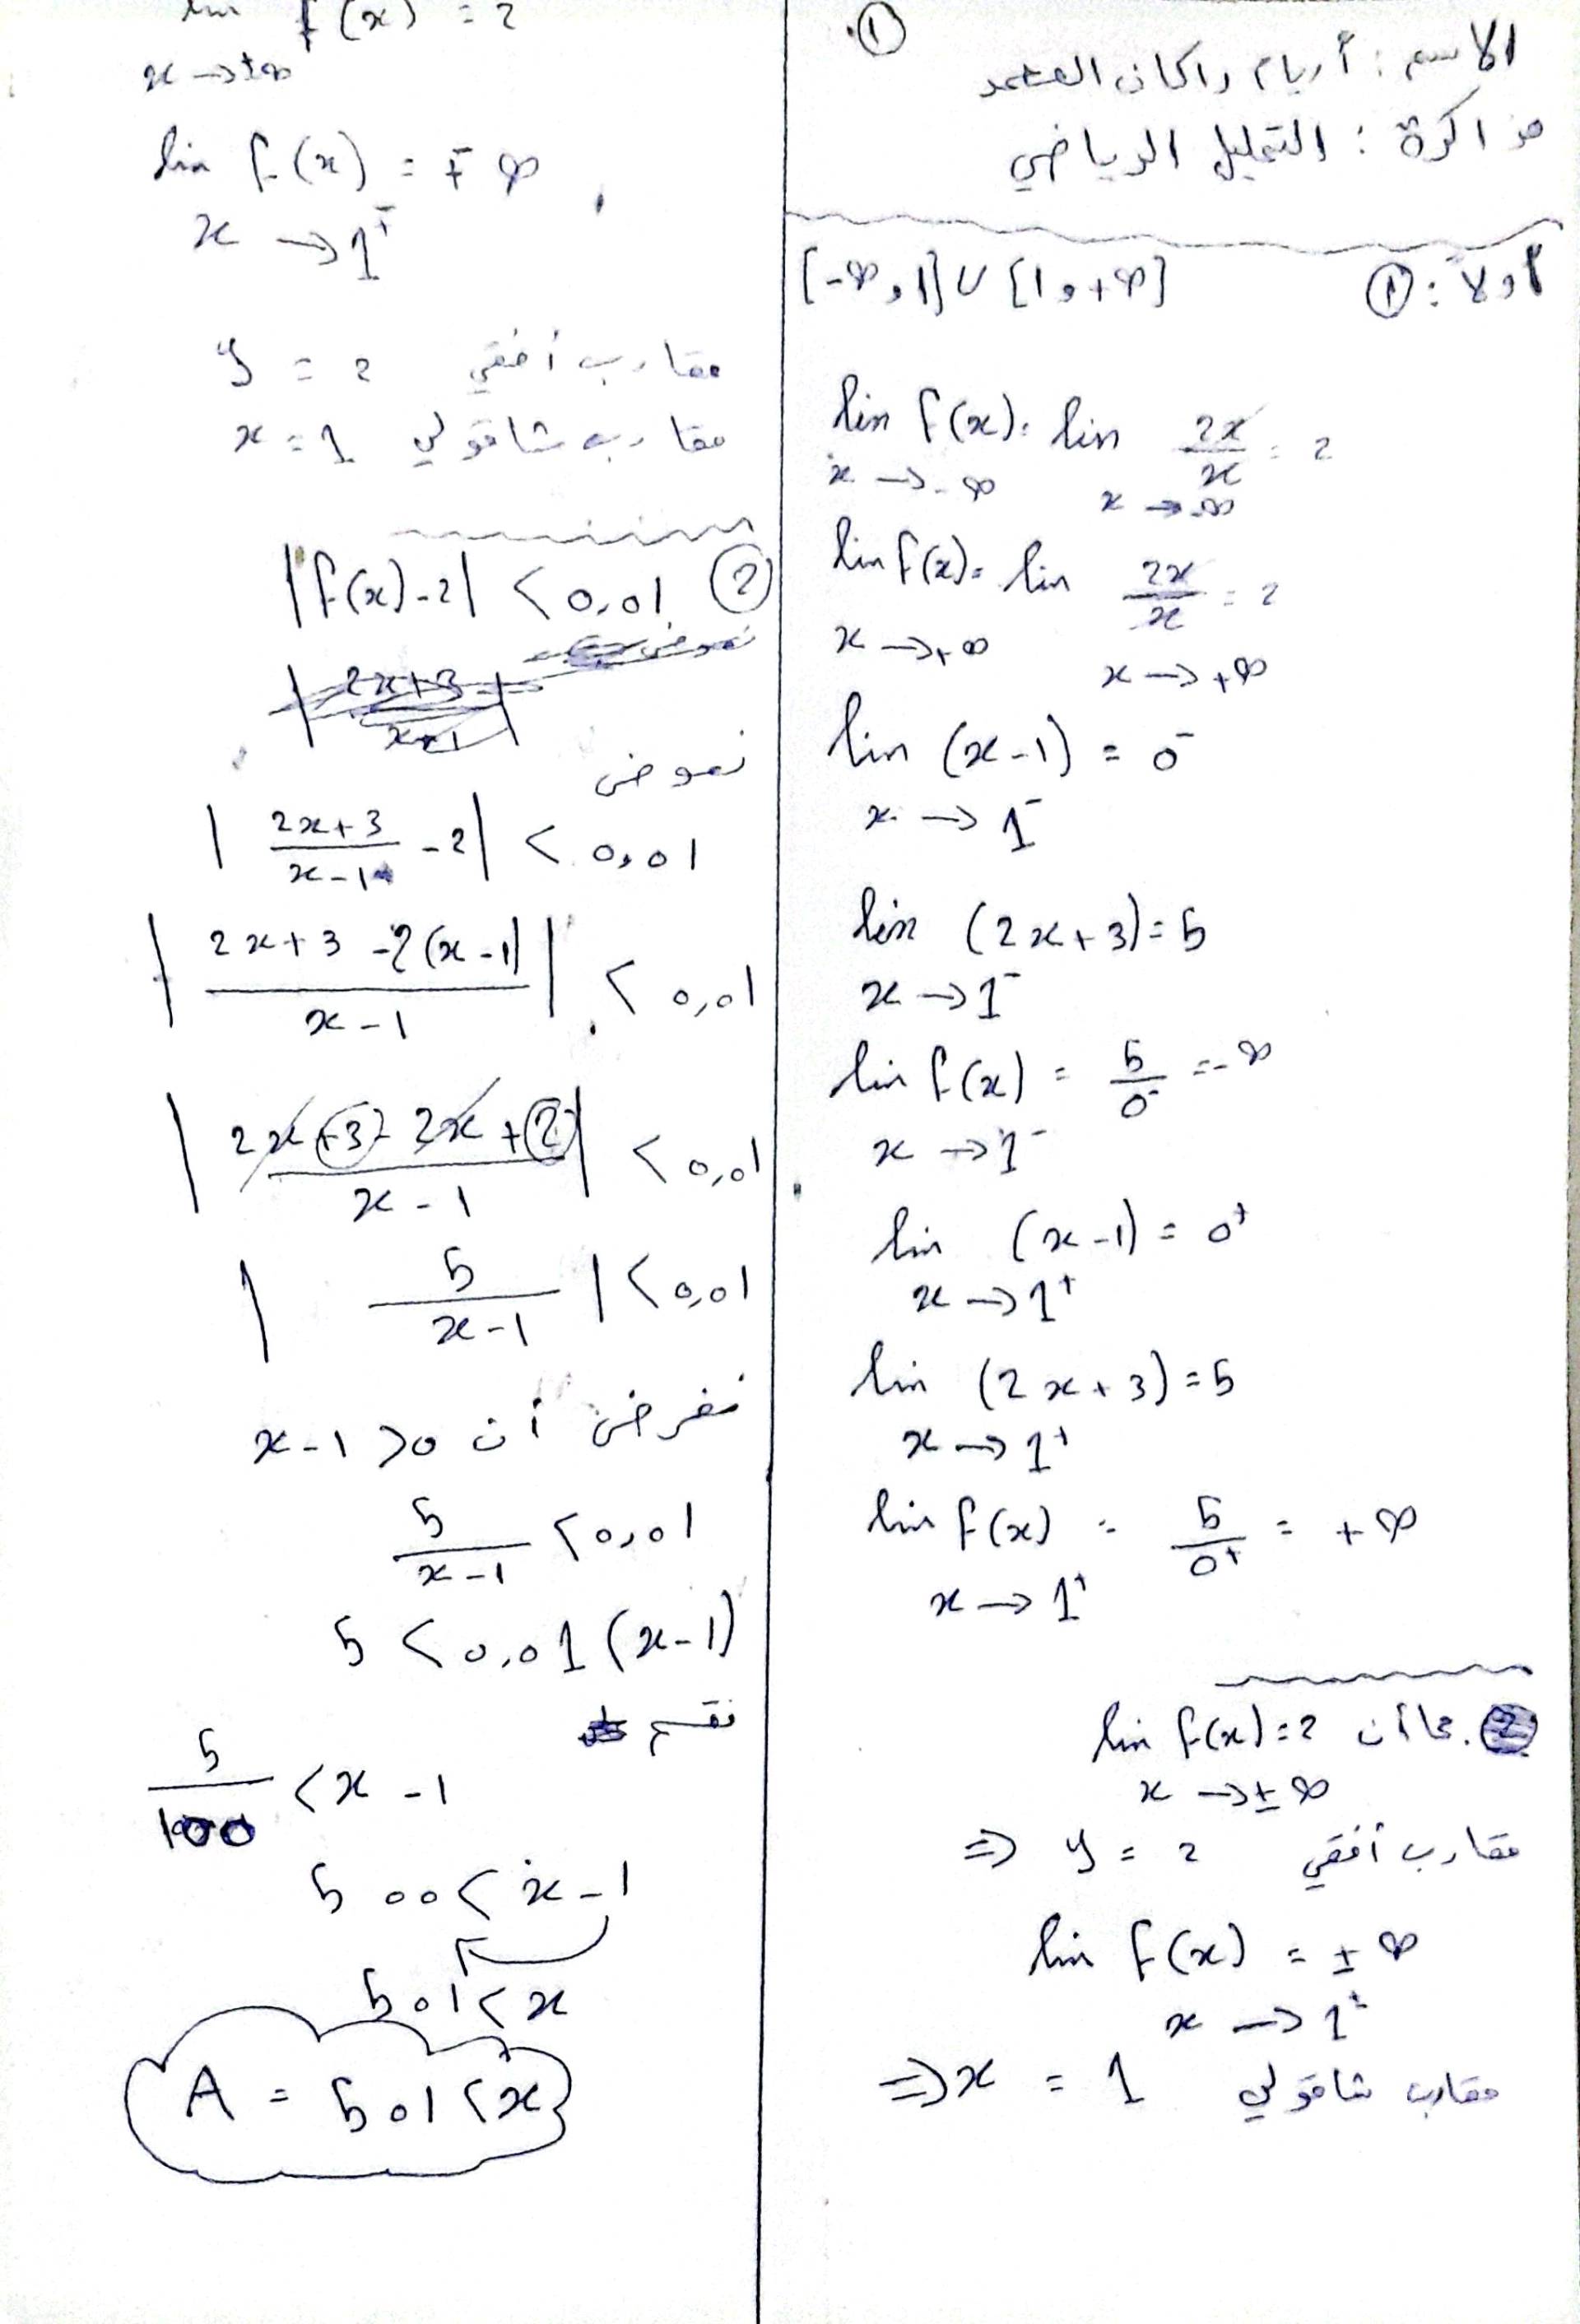 ①
الاسم : أريام راكان العتمد
مذاكرة : التحليل الرياضي
أولاً : ① [-∞ , 1] ∪ [1 , +∞]
lim f(x) = lim 2x/x = 2
x → -∞ x → -∞
lim f(x) = lim 2x/x = 2
x → +∞ x → +∞
lim (x-1) = 0⁻
x → 1⁻
lim (2x+3) = 5
x → 1⁻
lim f(x) = 5/0⁻ = -∞
x → 1⁻
lim (x-1) = 0⁺
x → 1⁺
lim (2x+3) = 5
x → 1⁺
lim f(x) = 5/0⁺ = +∞
x → 1⁺
② بما أن lim f(x) = 2
x → ±∞
⇒ y = 2 مقارب أفقي
lim f(x) = ±∞
x → 1±
⇒ x = 1 مقارب شاقولي
lim f(x) = 2
x → ±∞
lim f(x) = ∓∞
x → 1∓
y = 2 مقارب أفقي
x = 1 مقارب شاقولي
② |f(x)-2| < 0,01
نعوض
|(2x+3)/(x-1) - 2| < 0,01
|(2x+3 -2(x-1))/(x-1)| < 0,01
|(2x+3-2x+2)/(x-1)| < 0,01
|5/(x-1)| < 0,01
نفرض أن x-1 > 0
5/(x-1) < 0,01
5 < 0,01 (x-1)
نقسم
5/100 < x-1
500 < x-1
501 < x
A = 501 < x